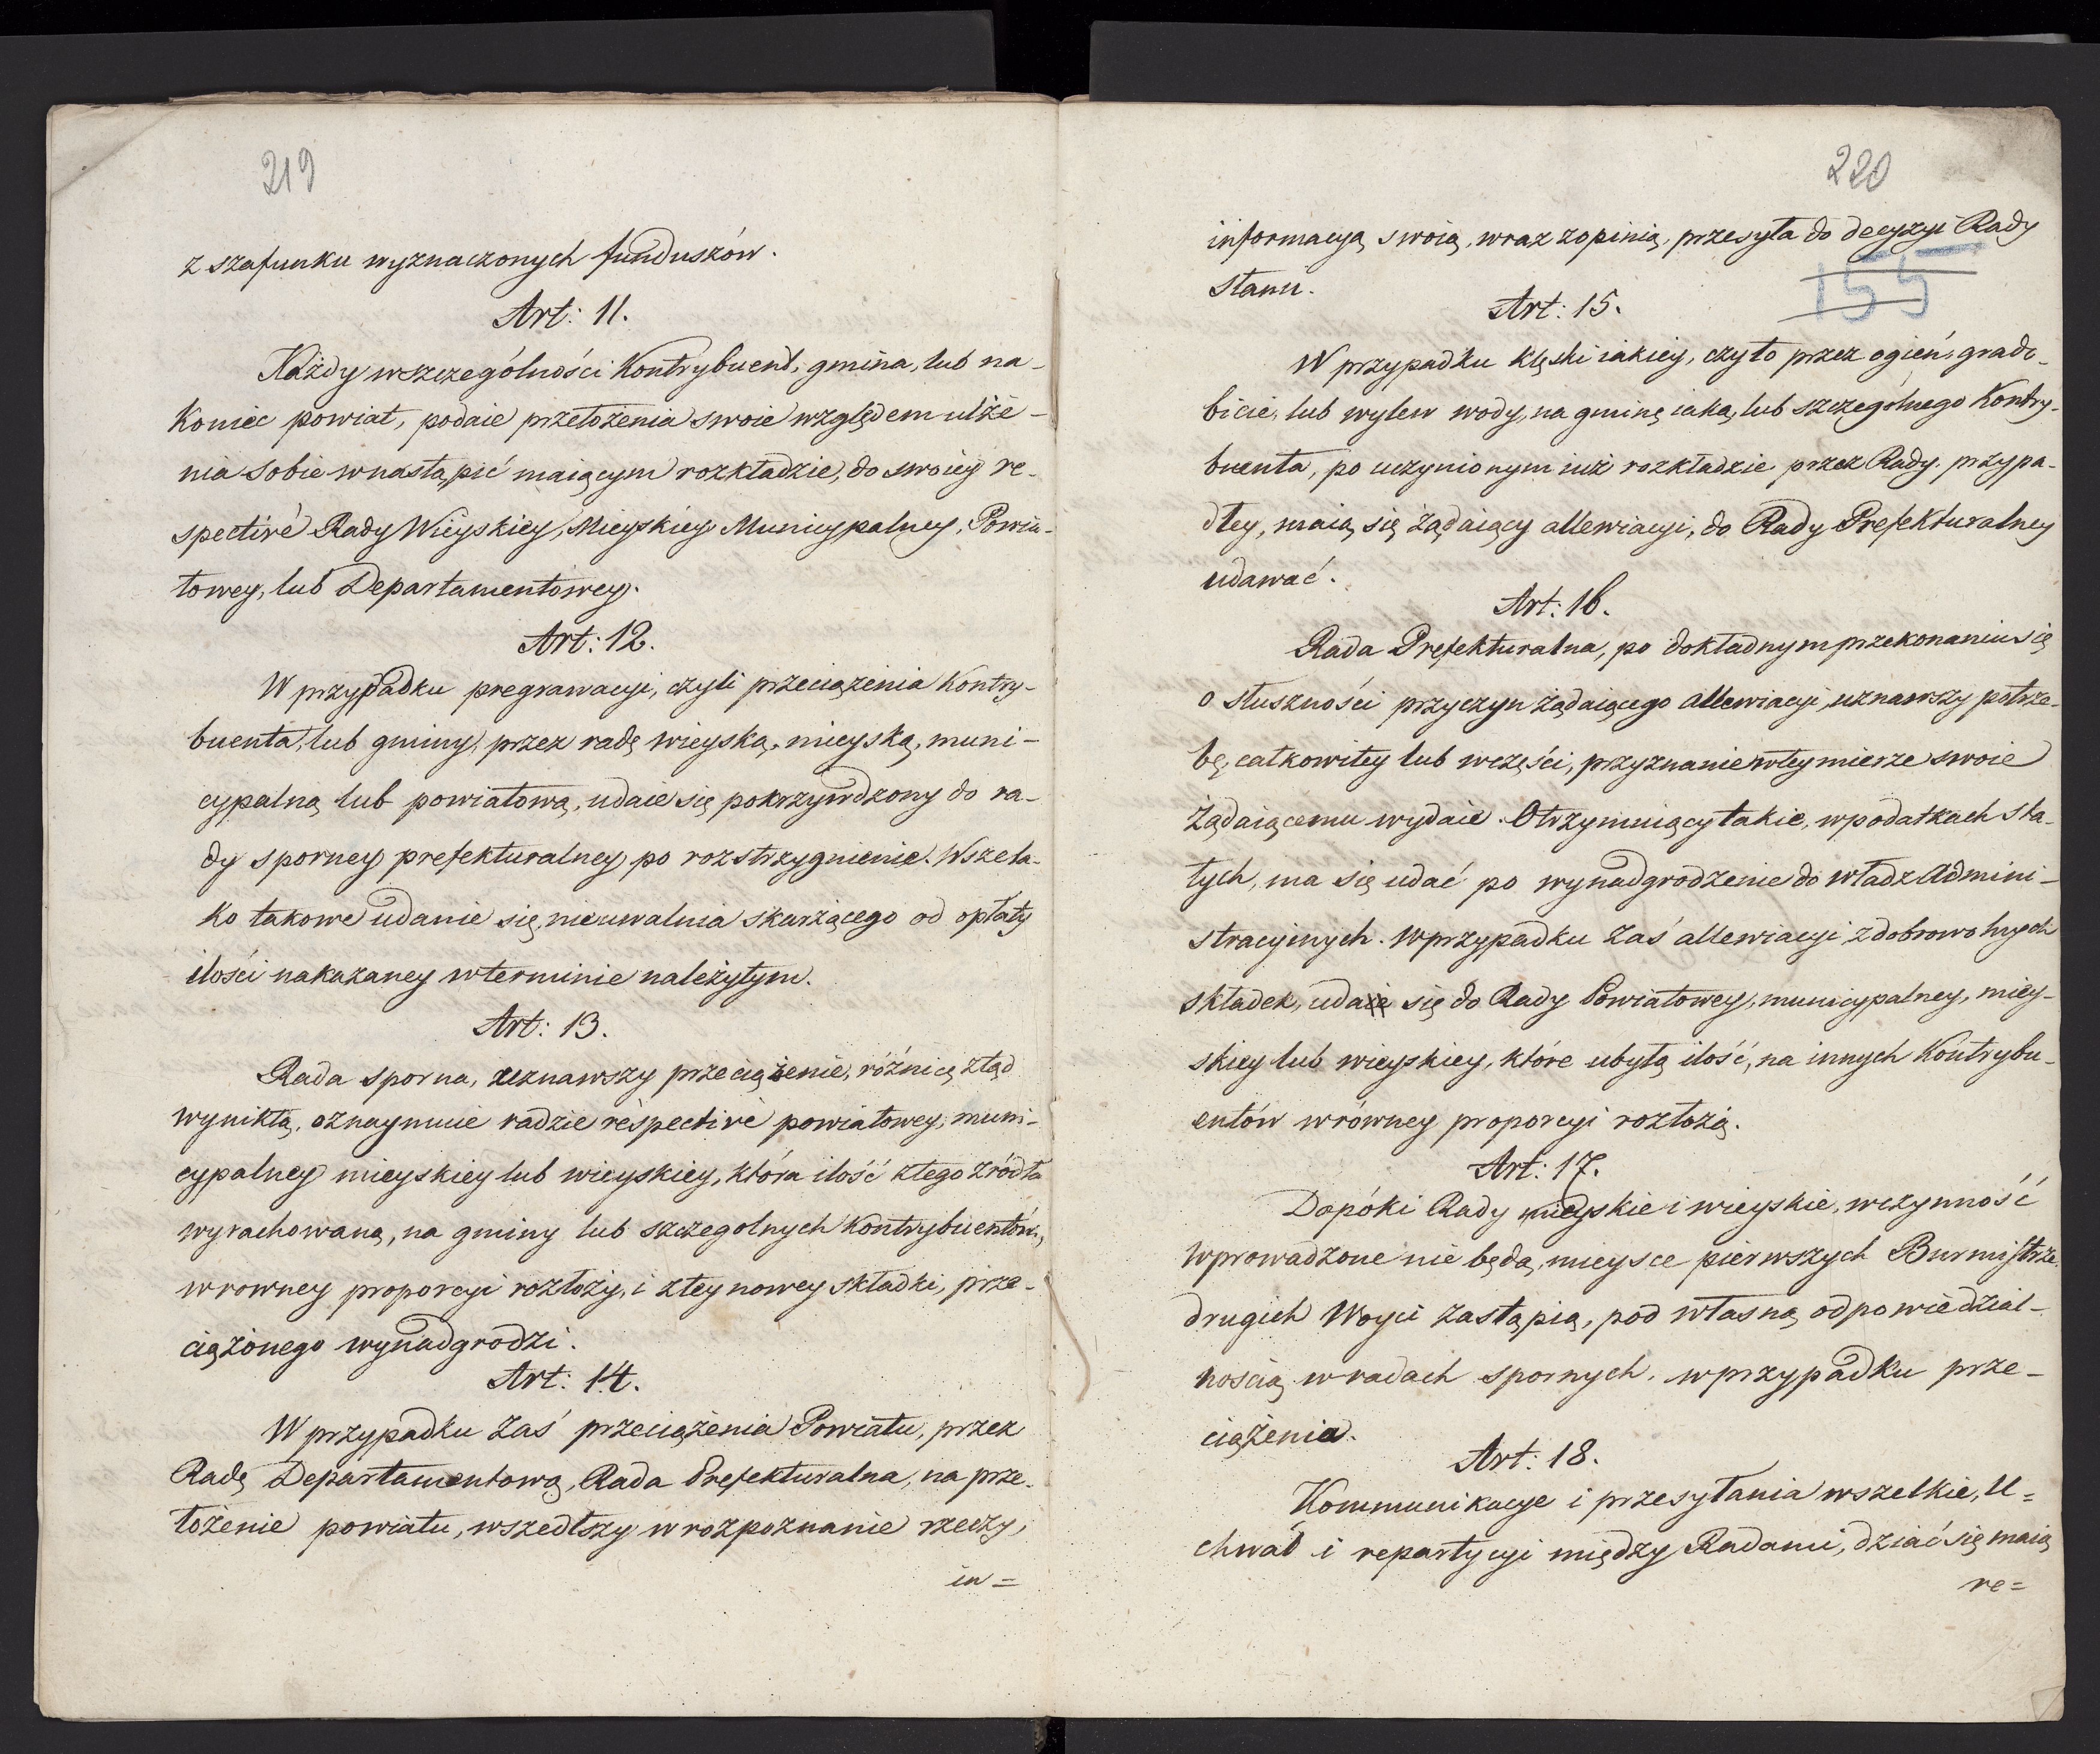 219
z szafunku wyznaczonych funduszów.
Art: 11.
Każdy wszczególności Kontrybuent, gmina, lub na-
koniec powiat, podaie przełożenia swoie względem ulże-
nia sobie wnastąpić maiącym rozkładzie, do swoiey re-
spective Rady Wieyskiey, Mieyskiey Municypalney, Powia-
towey, lub Departamentowey.
Art: 12.
W przypadku pregrawacyi, czyli przeciążenia Kontry-
buenta, lub gminy, przez radę wieyską, mieyską, muni-
cypalną lub powiatową, udaie się pokrzywdzony do ra-
dy sporney prefekturalney po rozstrzygnienie. Wszela-
ko takowe udanie się, nieuwalnia skarżącego od opłaty
ilości nakazaney wterminie należytym.
Art: 13.
Rada sporna, uznawszy przeciążenie, różnicę ztąd
wynikłą, oznaymuie radzie respective powiatowey, muni-
cypalney mieyskiey lub wieyskiey, która ilość ztego źródła
wyrachowaną, na gminy lub szczegolnych Kontrybuentów,
wrowney proporcyi rozłoży, i ztey nowey składki, prze-
ciążonego wynadgrodzi.
Art: 14.
W przypadku zaś przeciążenia Powiatu, przez
Radę Departamentową, Rada Prefekturalna, na prze-
łożenie powiatu, wszedłszy w rozpoznanie rzeczy,
in=
220
informacyą swoią, wraz zopinią, przesyła do decyzyi Rady
Stanu.
155
Art: 15.
W przypadku klęski iakiey, czyto przez ogień, grado-
bicie, lub wylew wody, na gminę iaką, lub szczególnego Kontry-
buenta, po uczynionym iuż rozkładzie przez Rady przypa-
dłey, maią się żądaiący allewiacyi, do Rady Prefekturalney
udawać.
Art: 16.
Rada Prefekturalna, po dokładnym przekonaniu się
o słuszności przyczyn żądaiącego allewiacyi, uznawszy potrze-
bę, całkowitey lub wczęści, przyznanie wtey mierze swoie
żądaiącemu wydaie. Otrzymuiący takie, wpodatkach sta-
łych, ma się udać po wynadgrodzenie do władz Admini-
stracyjnych. Wprzypadku zaś allewiacyi zdobrowolnych
składek, udaie się do Rady Powiatowey, municypalney, miey-
skiey lub wieyskiey, które ubyłą ilość, na innych Kontrybu-
entów wrówney proporcyi rozłożą.
Art: 17.
Dopóki Rady mieyskie i wieyskie, wczynność
wprowadzone nie będą, mieysce pierwszych Burmistrze,
drugich Woyci zastąpią, pod własną odpowiedzial-
nością w radach spornych, wprzypadku prze-
ciążenia.
Art: 18.
Kommunikacye i przesyłania wszelkie, U=
chwał i repartycyi między Radami, dziać się maią
re=